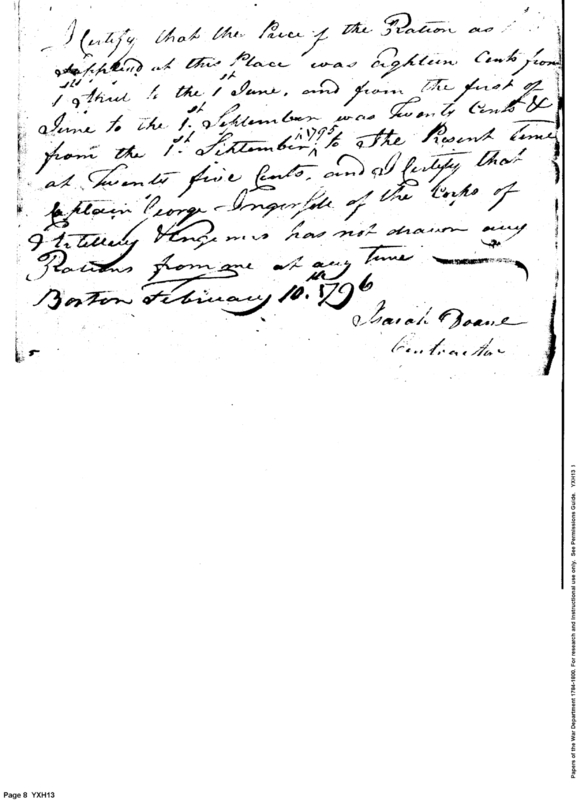 I Certify that the Price of the Ration as
Supplied at this Place was Eighteen Cents from
1st April to the 1st June, and from the first of
June to the 1st September was Twenty Cents &
from the 1st September 1795 to the Present time
at Twenty five Cents, and I Certify that
Captain George Ingersoll of the Corps of
Artellery & has not drawn any
Rations from me at any time
Boston February 10th 1796
Isaiah Doane
Contractor
Papers of the War Department 1784-1800. For research and instructional use only. See Permissions Guide. YXH13 1
Page 8 YXH13